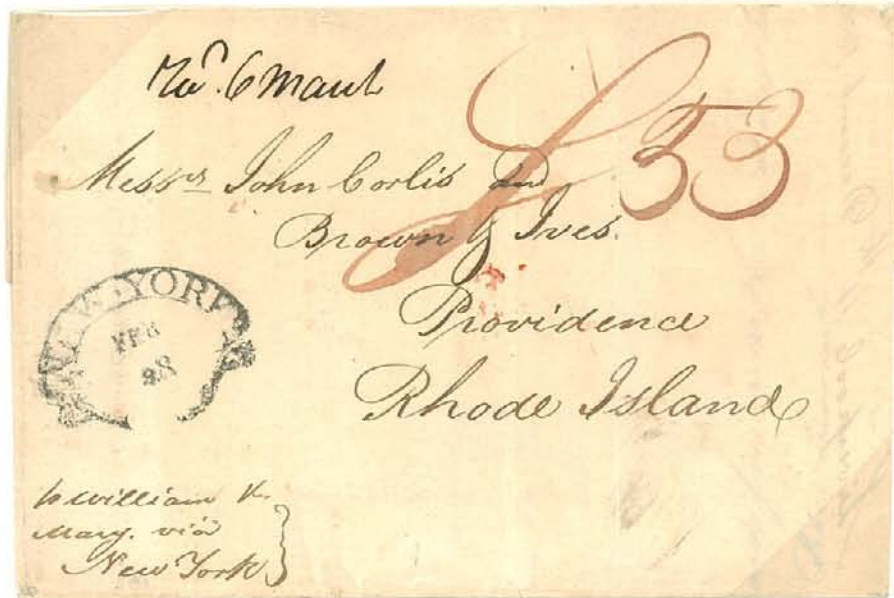 Messrs John Corlis and
Brown & Ives.
Providence
Rhode Island
53
NEW-YORK
FEB
28
William &
Mary. viâ
New York